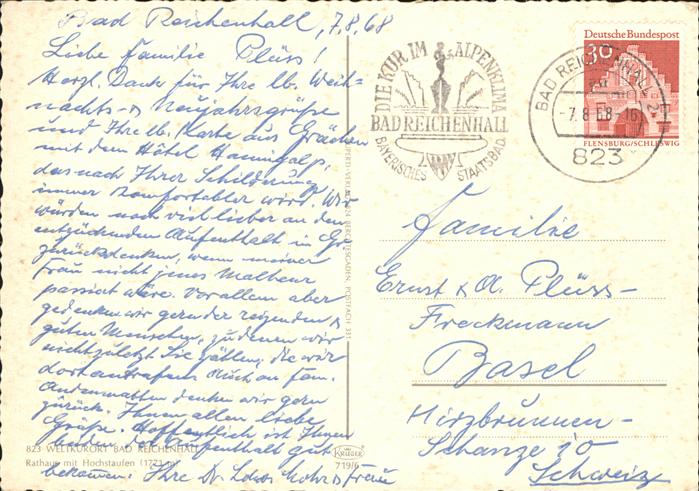 Bad Reichenhall, 7.8.68
Liebe Familie Plüss!
Herzl. Dank für Ihre lb. Weih-
nachts- & Neujahrsgrüße
und Ihre lb. Karte aus Grächen
mit dem Hôtel Hannigalp,
das nach Ihrer Schilderung
immer komfortabler wird. Wir
würden noch viel lieber an den
entzückenden Aufenthalt in Gr.
zurückdenken, wenn meiner
Frau nicht jenes Malheur
passiert wäre. Vor allem aber
gedenken wir gern der reizenden &
guten Menschen, zu denen wir
nicht zuletzt Sie zählen, die wir
dort antrafen. Auch an Fam.
Andenmatten denken wir gern
zurück. Ihnen allen liebe
Grüße. Hoffentlich ist Ihnen
beiden der Aufenthalt gut
bekommen. Ihre Dr. Mohr & Frau
823 WELTKURORT BAD REICHENHALL
Rathaus mit Hochstaufen (1771 m)
KRÜGER
719/6
VERLAG BERCHTESGADEN, POSTFACH 331
DIE KUR IM ALPENKLIMA
BAD REICHENHALL
BAYERISCHES STAATSBAD
Deutsche Bundespost
30
FLENSBURG/SCHLESWIG
BAD REICHENHALL 2
-7.8.68-16
823
Familie
Ernst & A. Plüss-
Freckmann
Basel
Hirzbrunnen-
Schanze 10
Schweiz